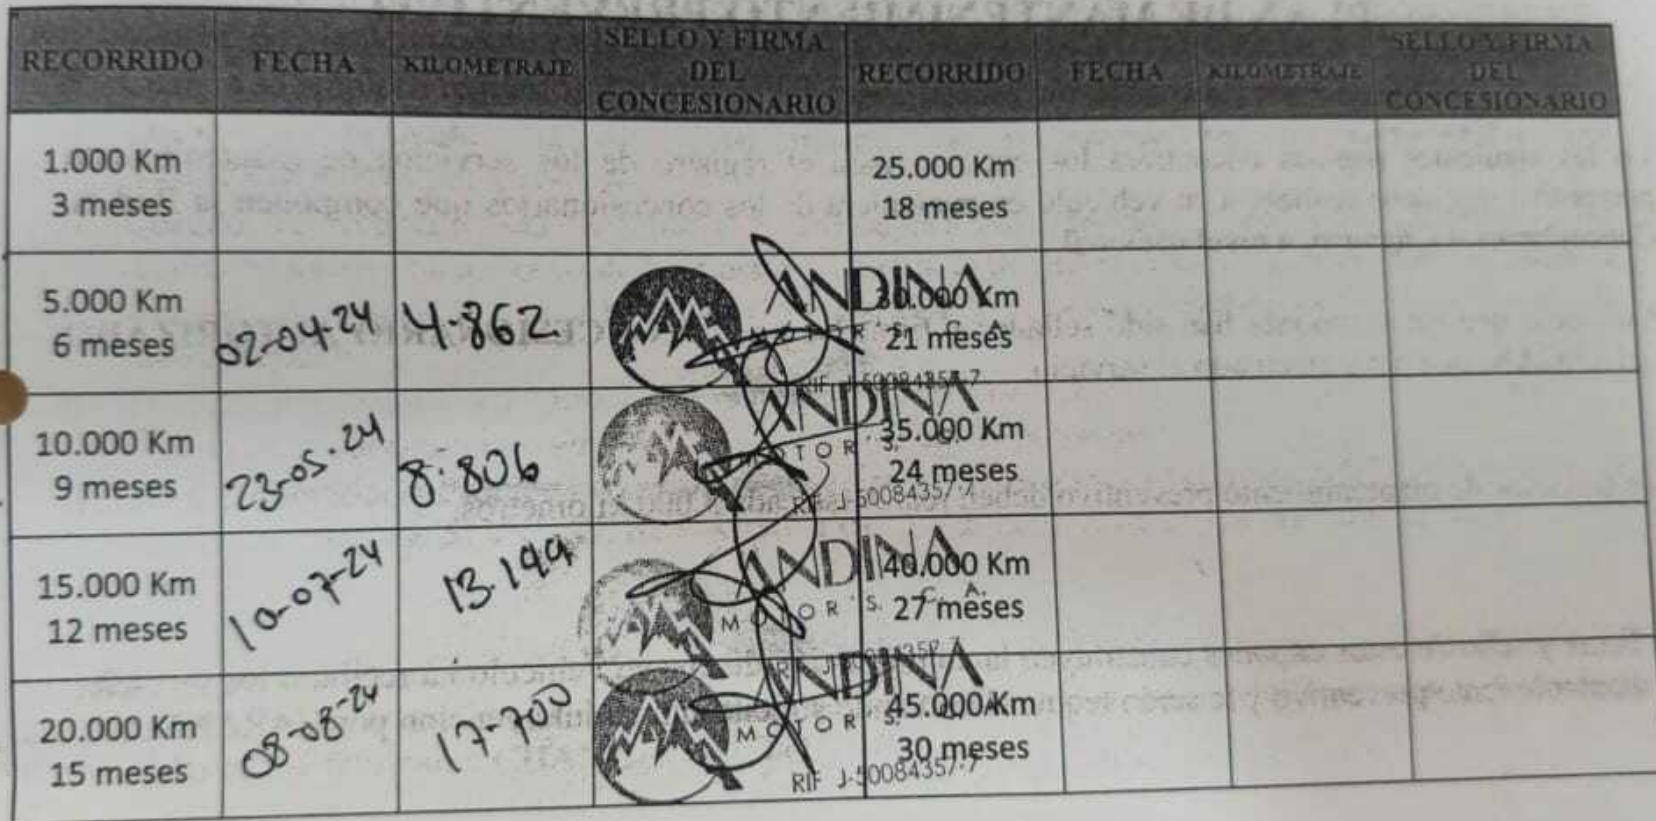 RECORRIDO FECHA KILOMETRAJE SELLO Y FIRMA DEL CONCESIONARIO RECORRIDO FECHA KILOMETRAJE SELLO Y FIRMA DEL CONCESIONARIO
1.000 Km
3 meses
25.000 Km
18 meses
5.000 Km
6 meses
02-04-24
4-862
ANDINA
MOTOR'S
RIF J-50084357-7
30.000 Km
21 meses
10.000 Km
9 meses
23-05-24
8.806
ANDINA
MOTOR'S.
RIF J-50084357-7
35.000 Km
24 meses
15.000 Km
12 meses
10-07-24
13.199
ANDINA
MOTOR'S. C. A.
40.000 Km
27 meses
20.000 Km
15 meses
08-08-24
17-700
ANDINA
MOTOR'S.
RIF J-50084357-7
45.000 Km
30 meses